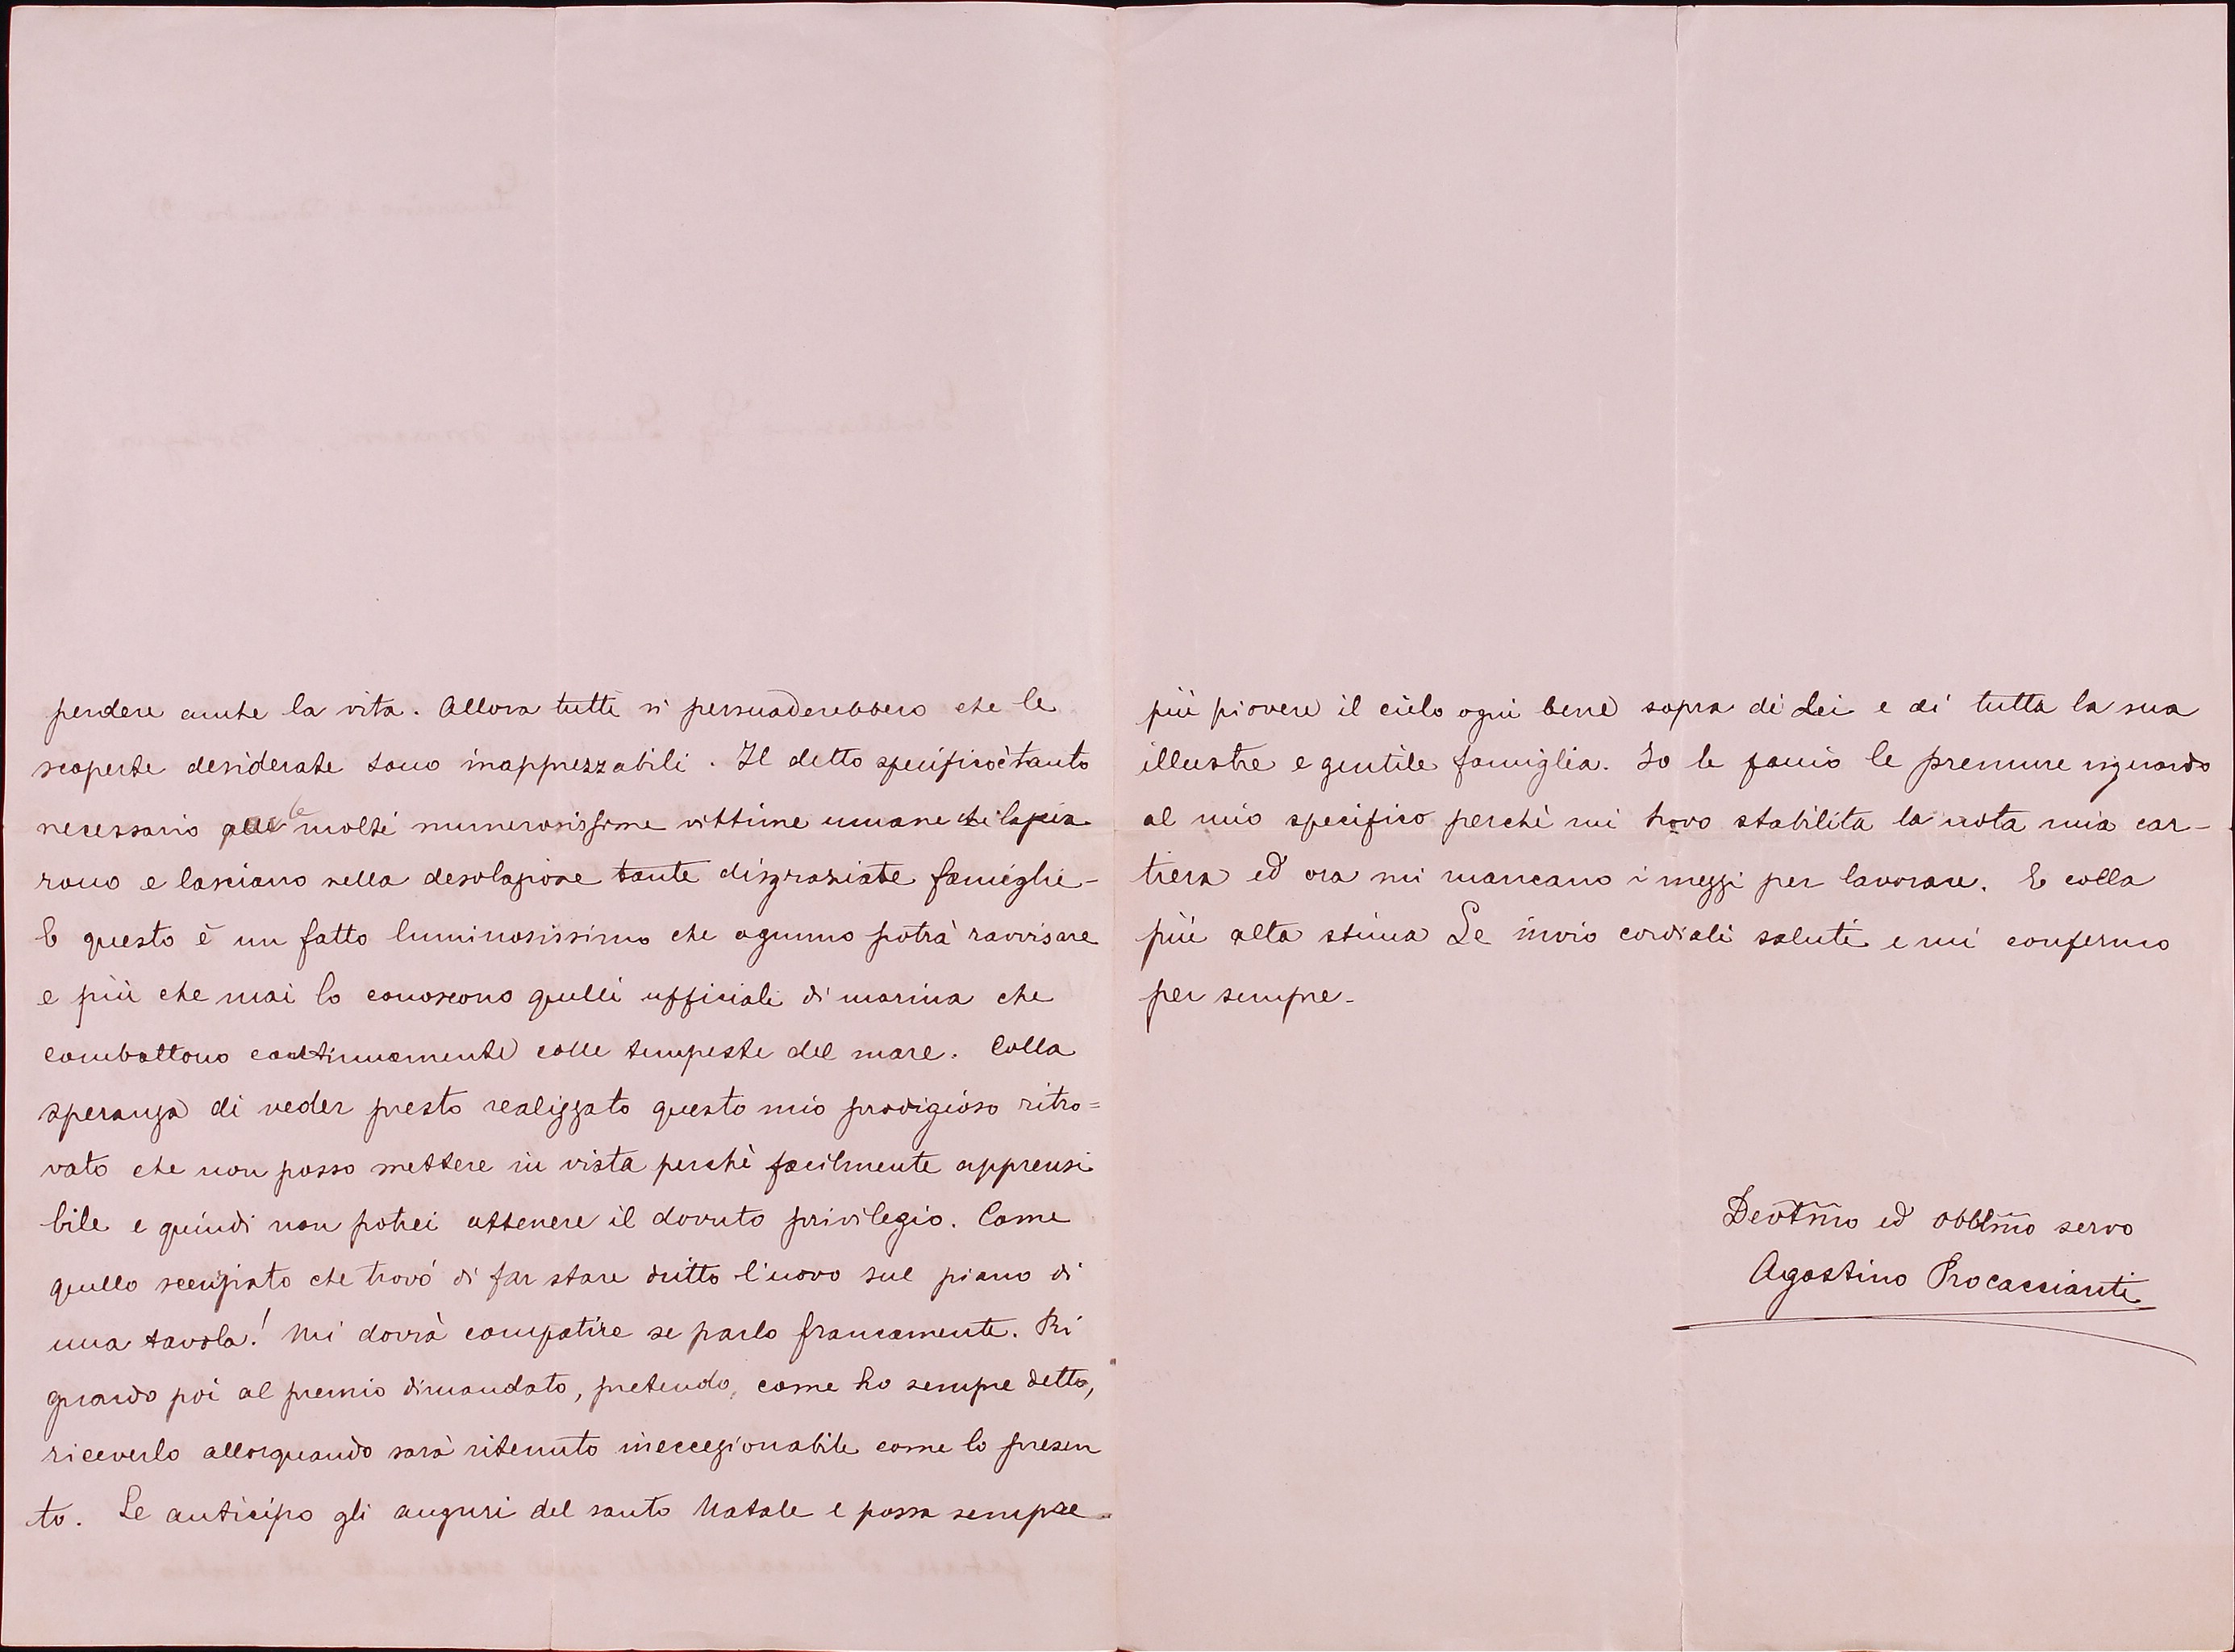 perdere anche la vita. Allora tutti si persuaderebbero che le
scoperte desiderate sono inapprezzabili. Il detto specifico è tanto
necessario molte numerosissime vittime umane che lascia
rono e lasciano nella desolazione tante disgraziate famiglie -
E questo è un fatto luminosissimo che ognuno potrà ravvisare
e più che mai lo conoscono quelli ufficiali di marina che
combattono continuamente colle tempeste del mare. Colla
speranza di veder presto realizzato questo mio prodigioso ritro=
vato che non posso mettere in vista perchè facilmente apprensi
bile e quindi non potrei ottenere il dovuto privilegio. Come
quello scenziato che trovò di far stare dritto l'uovo sul piano di
una tavola! Mi dovrà compatire se parlo francamente. Ri
guardo poi al premio dimandato, pretendo, come ho sempre detto,
riceverlo allorquando sarà ritenuto ineccezionabile come lo presen
to. Le anticipo gli auguri del santo Natale e possa sempre
più piovere il cielo ogni bene sopra di Lei e di tutta la sua
illustre e gentile famiglia. Io le faccio le premure riguardo
al mio specifico perchè mi trovo stabilita la nota mia car-
tiera ed ora mi mancano i mezzi per lavorare. E colla
più alta stima Le invio cordiali saluti e mi confermo
per sempre -
Devotmo ed obblmo servo
Agostino Procaccianti